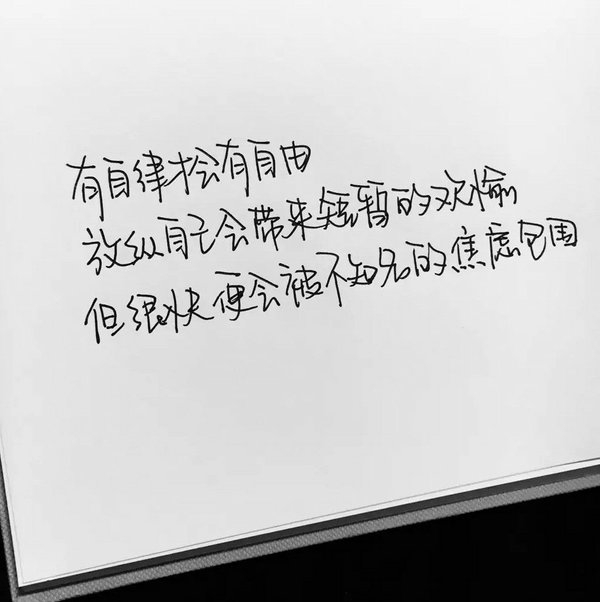 有自律才会有自由
放纵自己会带来短暂的欢愉
但很快便会被不知名的焦虑包围